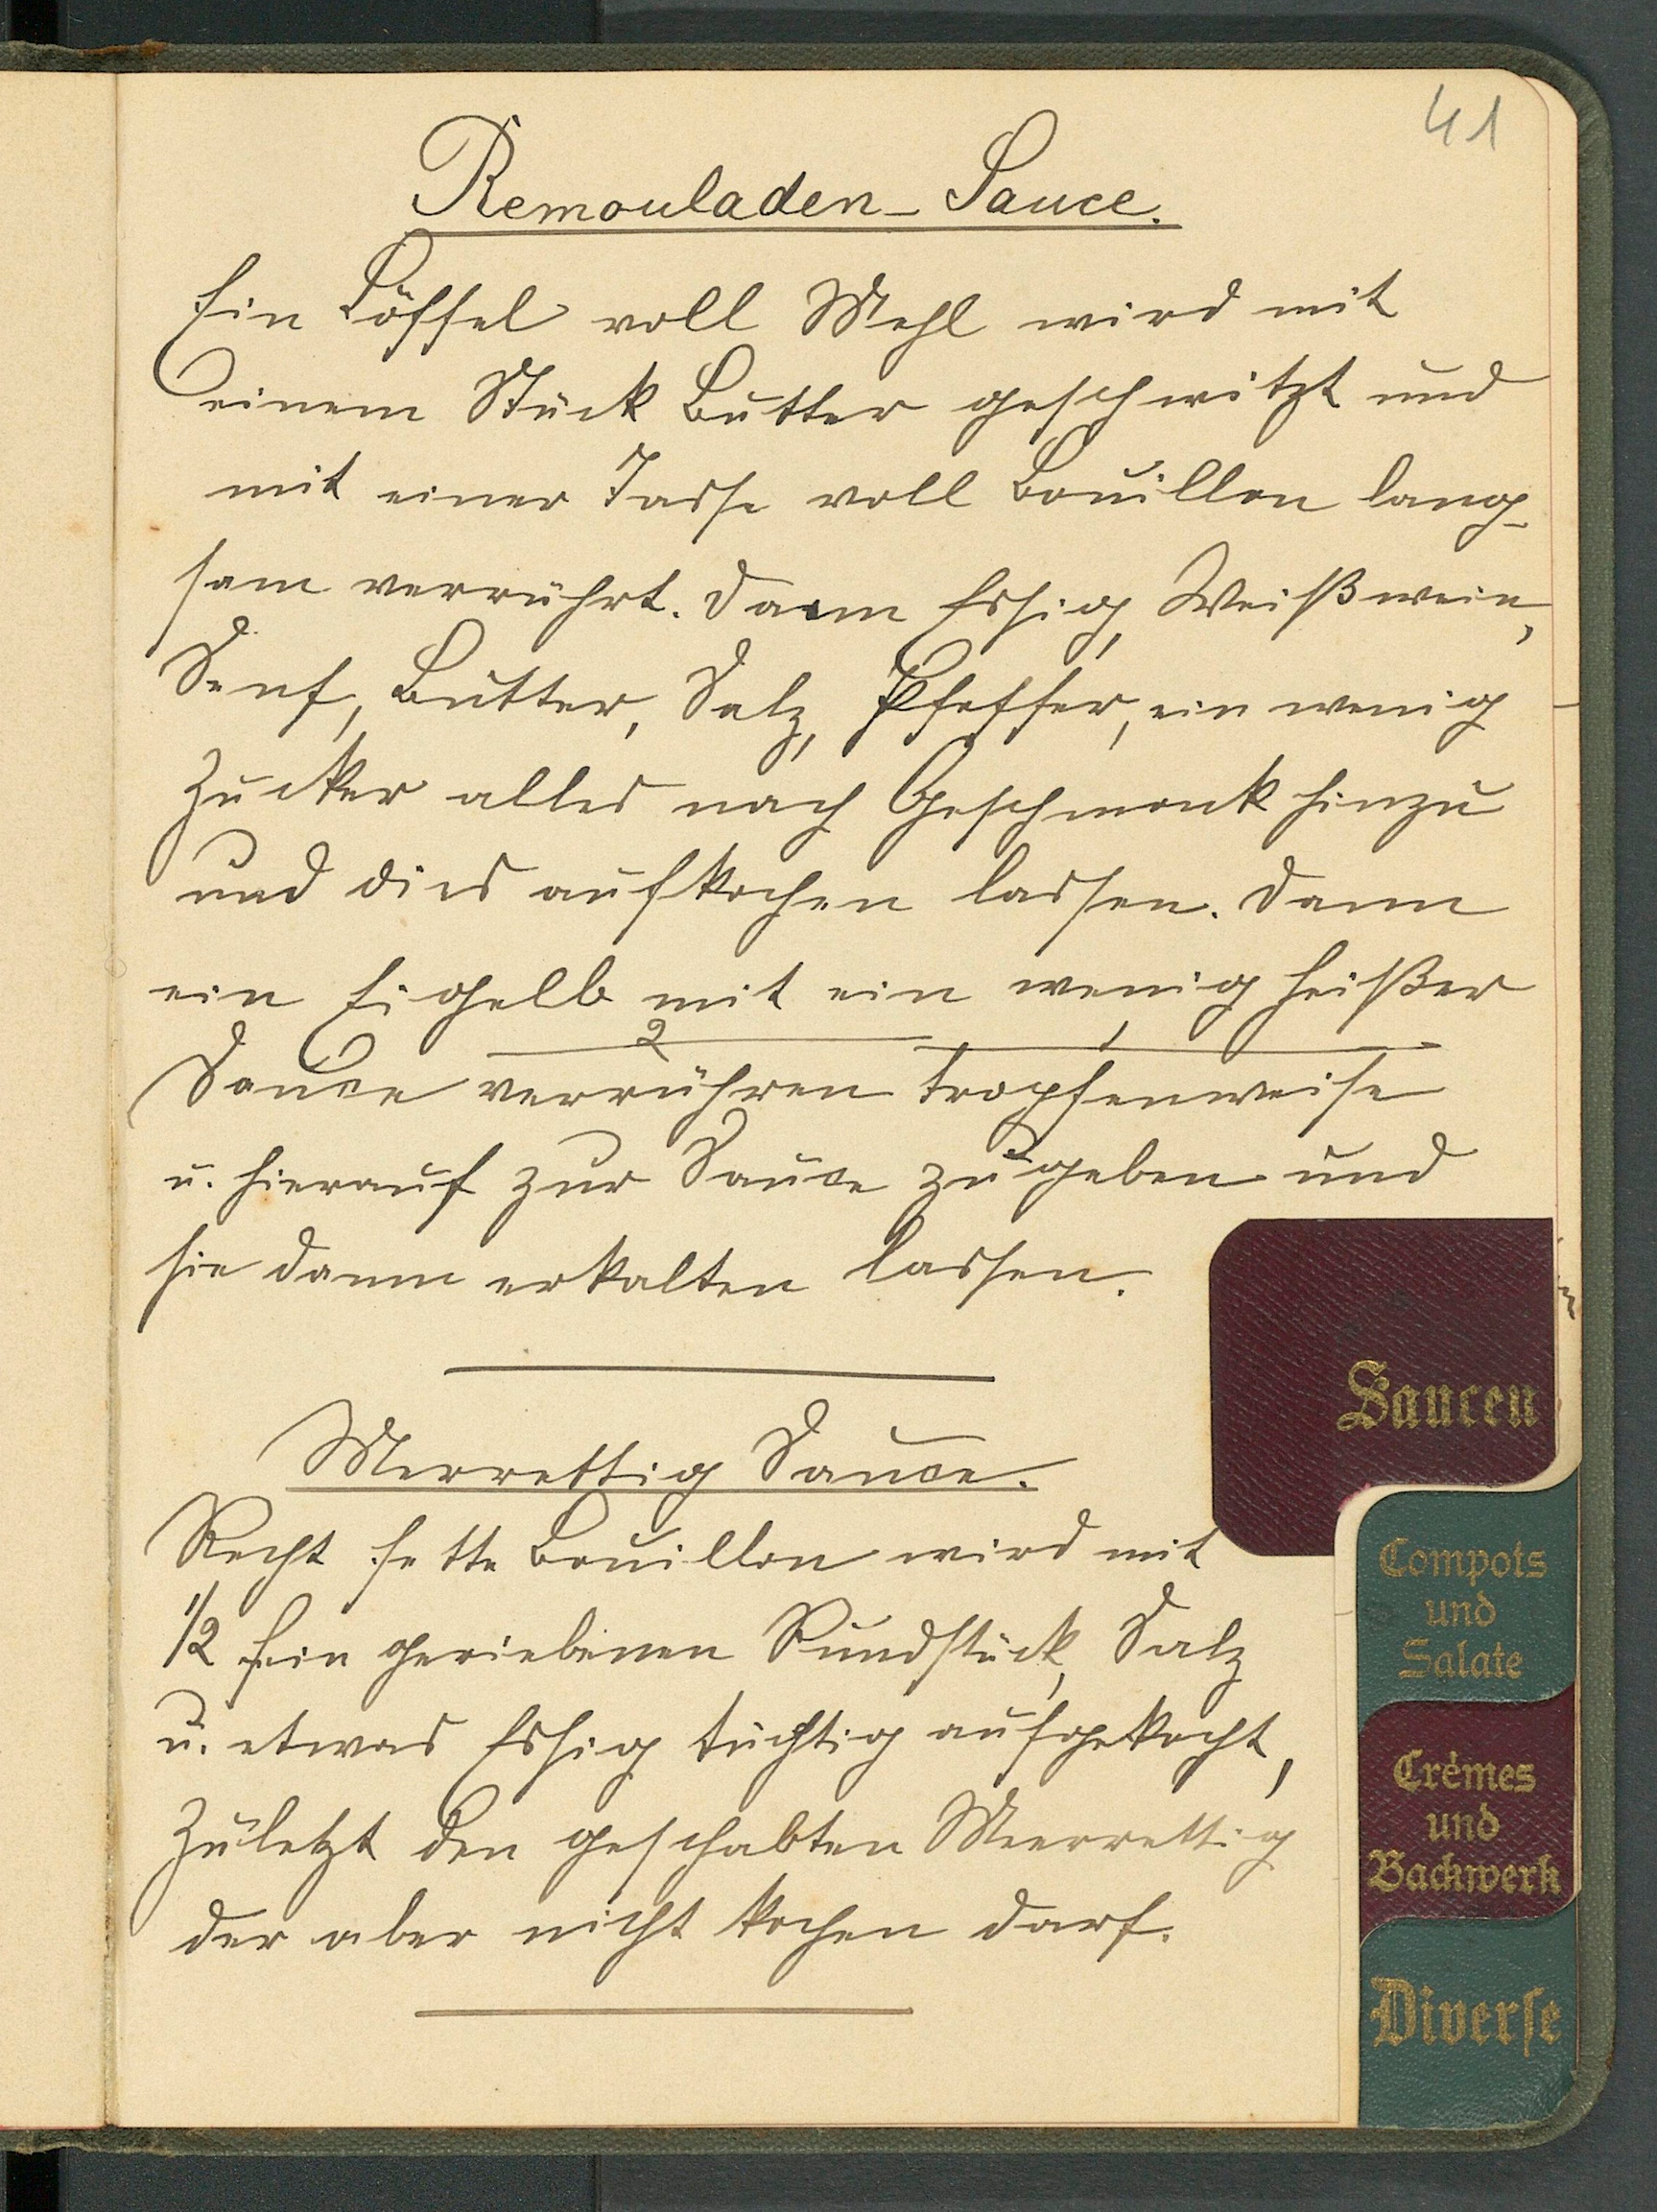 41
Remouladen-Sauce.
Ein Löffel voll Mehl wird mit
einem Stück Butter geschwitzt und
mit einer Tasse voll Bouillon lang-
sam verrührt. Dann Essig, Weißwein,
Senf, Butter, Salz, Pfeffer, ein wenig
Zucker alles nach Geschmack hinzu
und dies aufkochen lassen. Dann
ein Eigelb mit ein wenig heißer
2 1
Sauce verrühren tropfenweise
u. hierauf zur Sauce zugeben und
sie dann erkalten lassen.
Merrettig Sauce.
Recht fette Bouillon wird mit
1/2 fein geriebenen Rundstück, Salz
u. etwas Essig tüchtig aufgekocht,
Zuletzt den geschabten Meerrettig
der aber nicht kochen darf.
Saucen
Compots
und
Salate
Crémes
und
Backwerk
Diverse